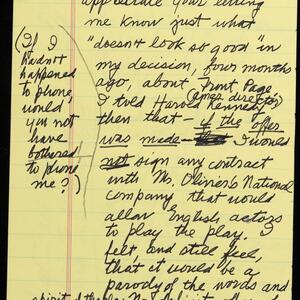 appreciate your letting
me know just what
"doesn't look so good" in
my decision, four months
ago, about Front Page.
I told Harold Kennedy,
(ams. director)
then that — if the offer
was made — I would
not sign any contract
with Mr. Olivier's National
company that would
allow English actors
to play the play. I
felt, and still feel,
that it would be a
parody of the words and
(If I
hadn't
happened
to phone,
would
you not
have
bothered
to phone
me?)